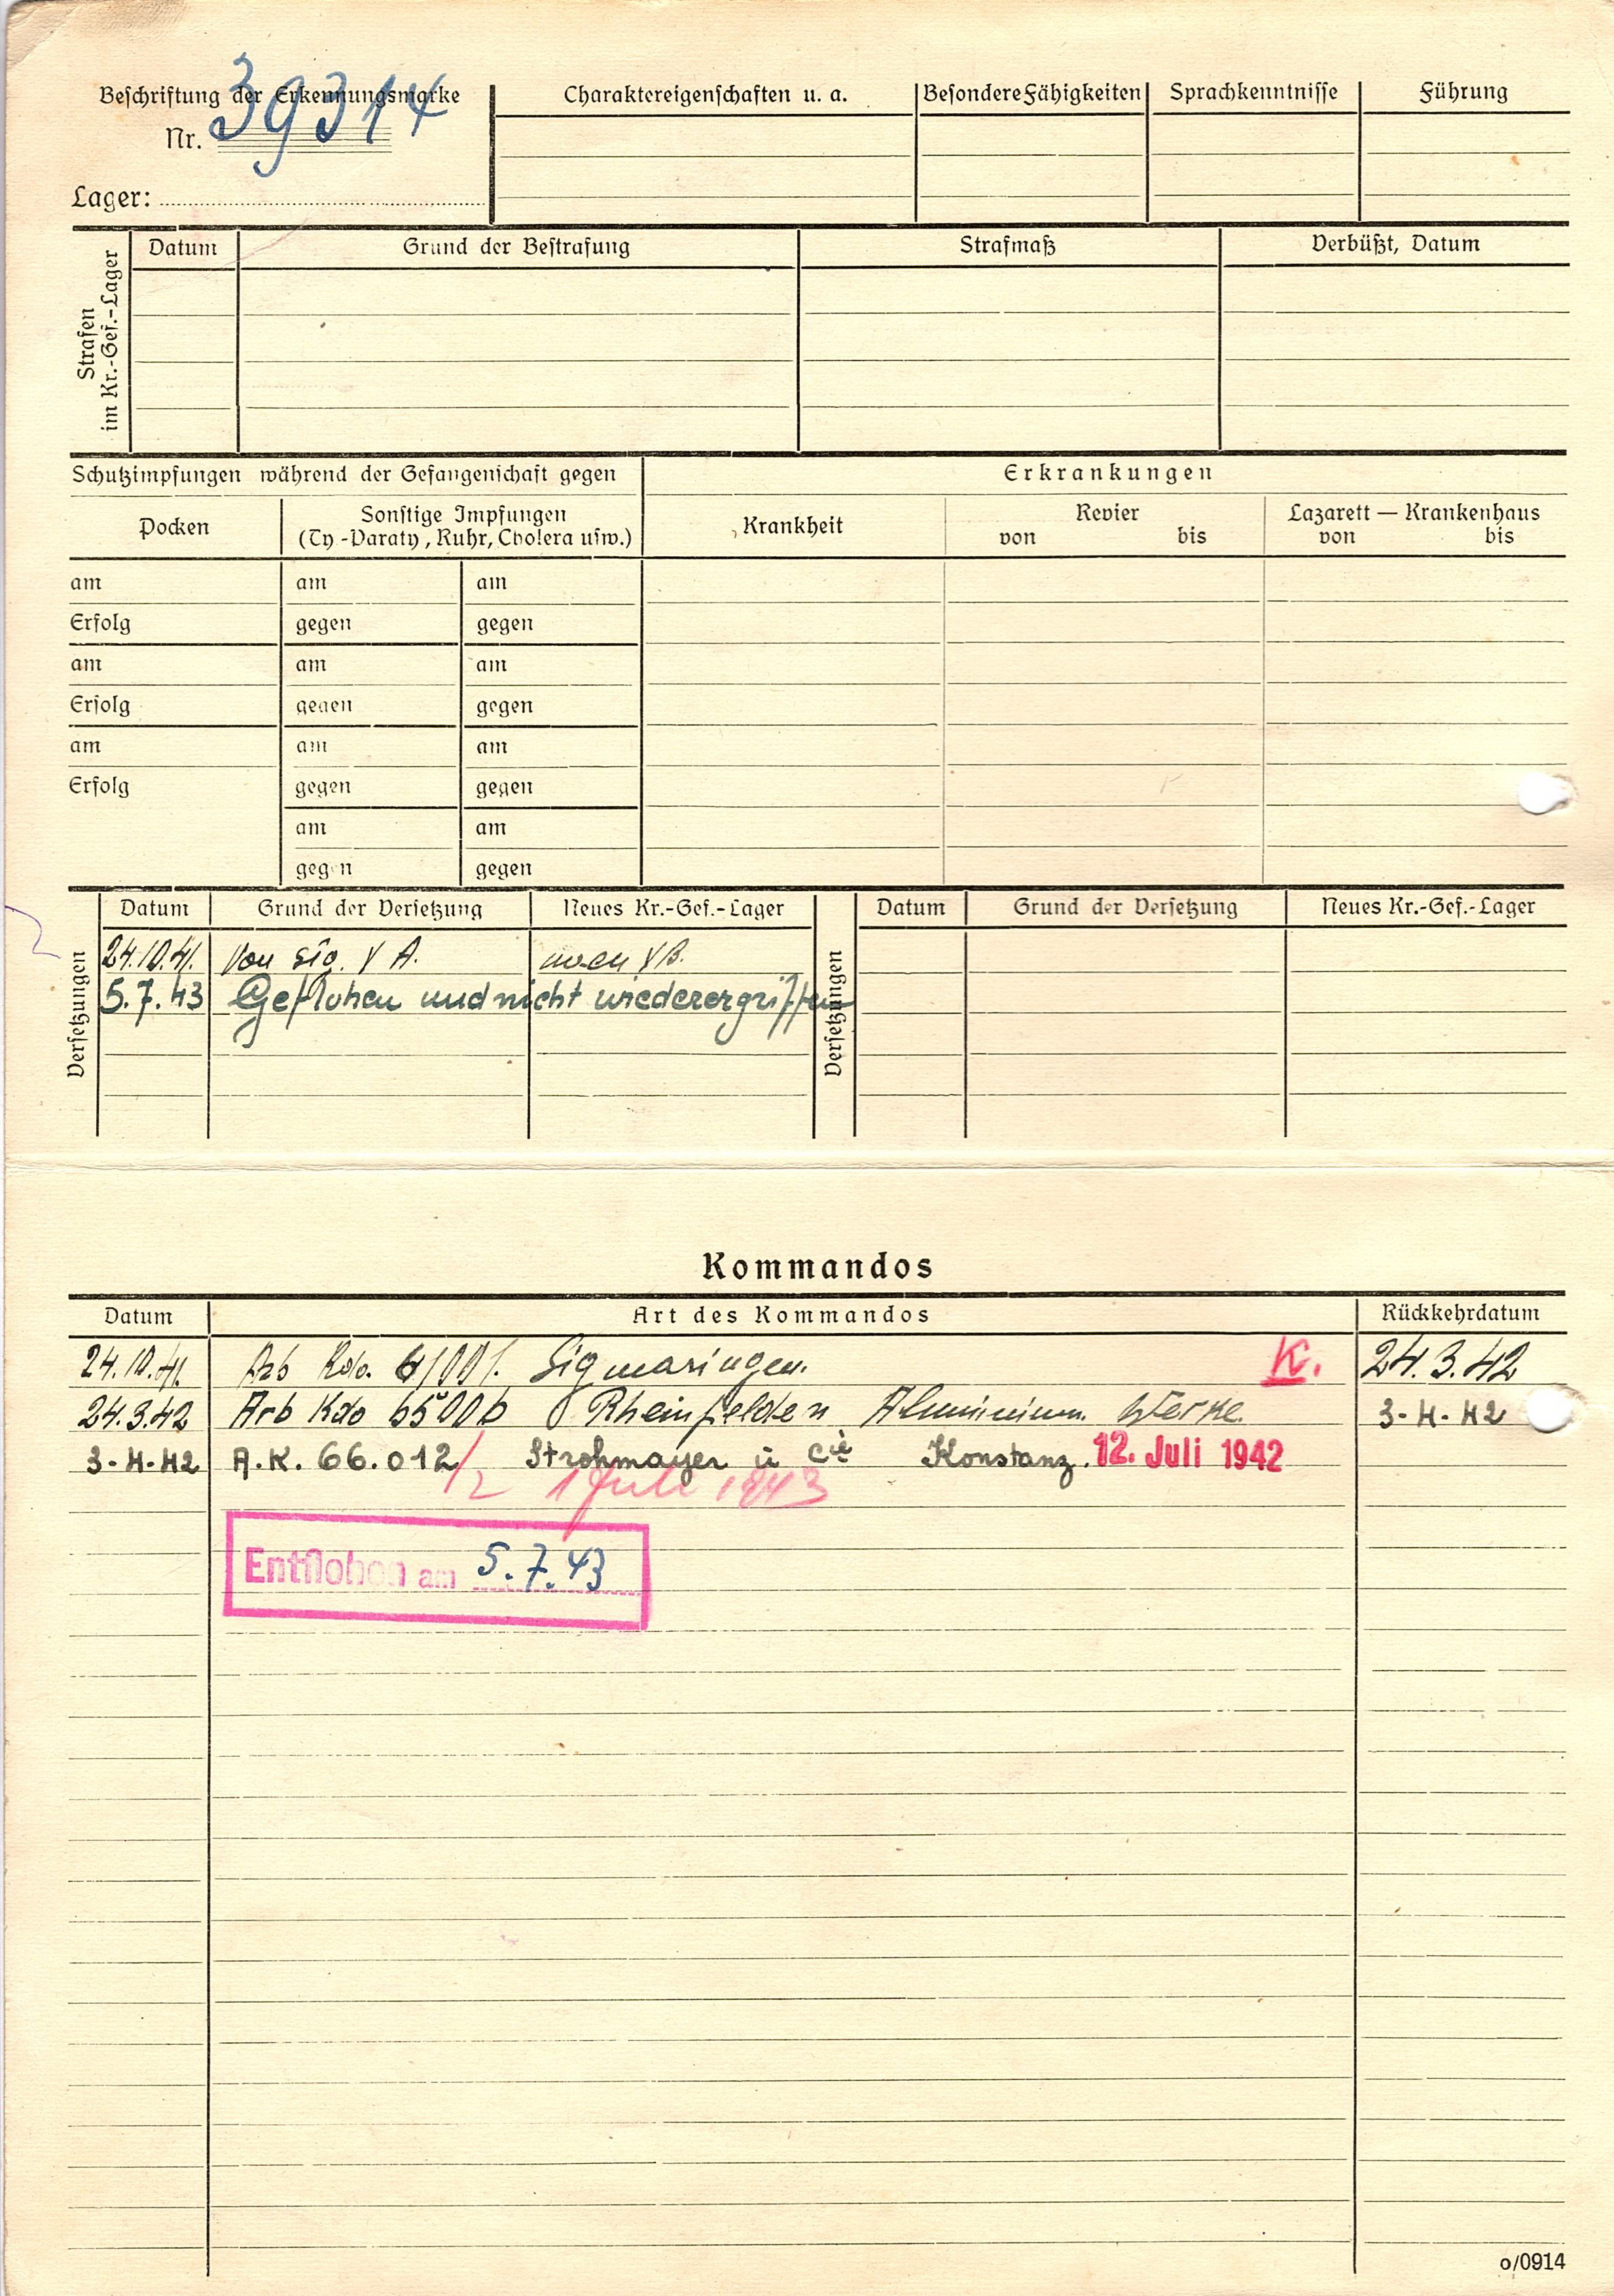 Beschriftung der Erkennungsmarke
Nr. 39314
Lager:
Charaktereigenschaften u. a.
Besondere Fähigkeiten
Sprachkenntnisse
Führung
Strafen
im Kr.-Gef.-Lager
Datum
Grund der Bestrafung
Strafmaß
Verbüßt, Datum
Schutzimpfungen während der Gefangenschaft gegen
Erkrankungen
Pocken
Sonstige Impfungen
(Ty.-Paraty., Ruhr, Cholera usw.)
Krankheit
Revier
von bis
Lazarett — Krankenhaus
von bis
am am am
Erfolg gegen gegen
am am am
Erfolg gegen gegen
am am am
Erfolg gegen gegen
am am
gegen gegen
Versetzungen
Datum Grund der Versetzung Neues Kr.-Gef.-Lager
24.10.41. Von V A. V B.
5.7.43 Geflohen und nicht wiederergriffen
Versetzungen
Datum Grund der Versetzung Neues Kr.-Gef.-Lager
Kommandos
Datum Art des Kommandos Rückkehrdatum
24.10.41. Arb Kdo. Sigmaringen. K. 24.3.42
24.3.42 Arb Kdo 6500b Rheinfelden Aluminium. Werke. 3-4-42
3-4-42 A.K. 66.012/2 Strohmayer u Cie Konstanz. 12. Juli 1942
1 Juli 1943
Entflohen am 5.7.43
o/0914